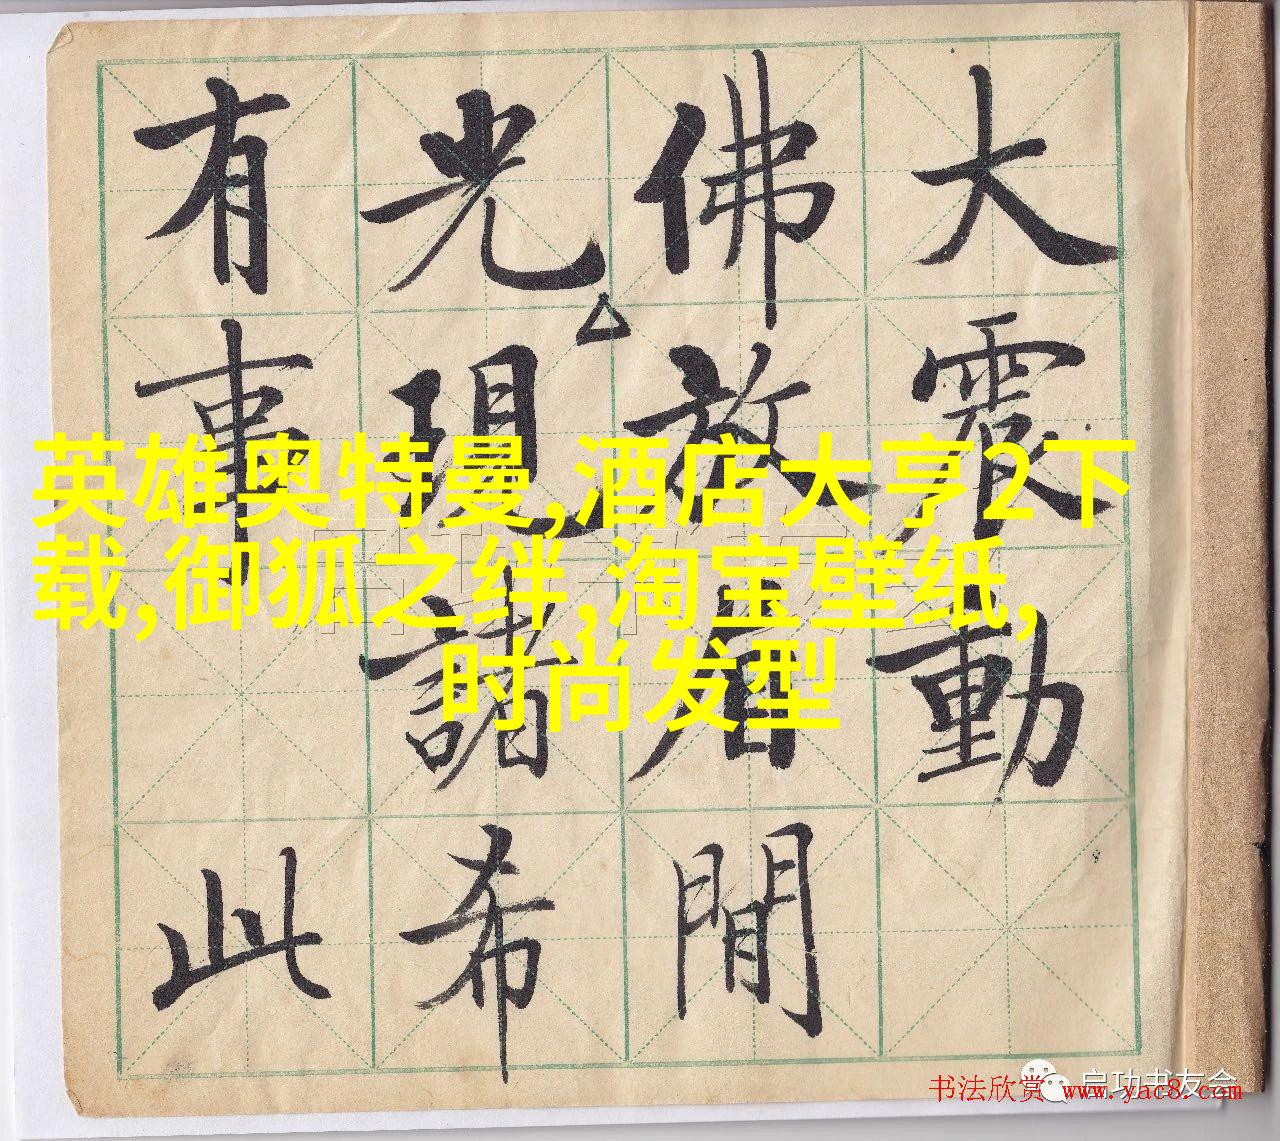 大震動
佛放眉間
光現諸希
有事此
英雄奥特曼,酒店大亨2下
载,御狐之绊,淘宝壁纸,
时尚发型
启功书友会
书法欣赏 www.yac8.com